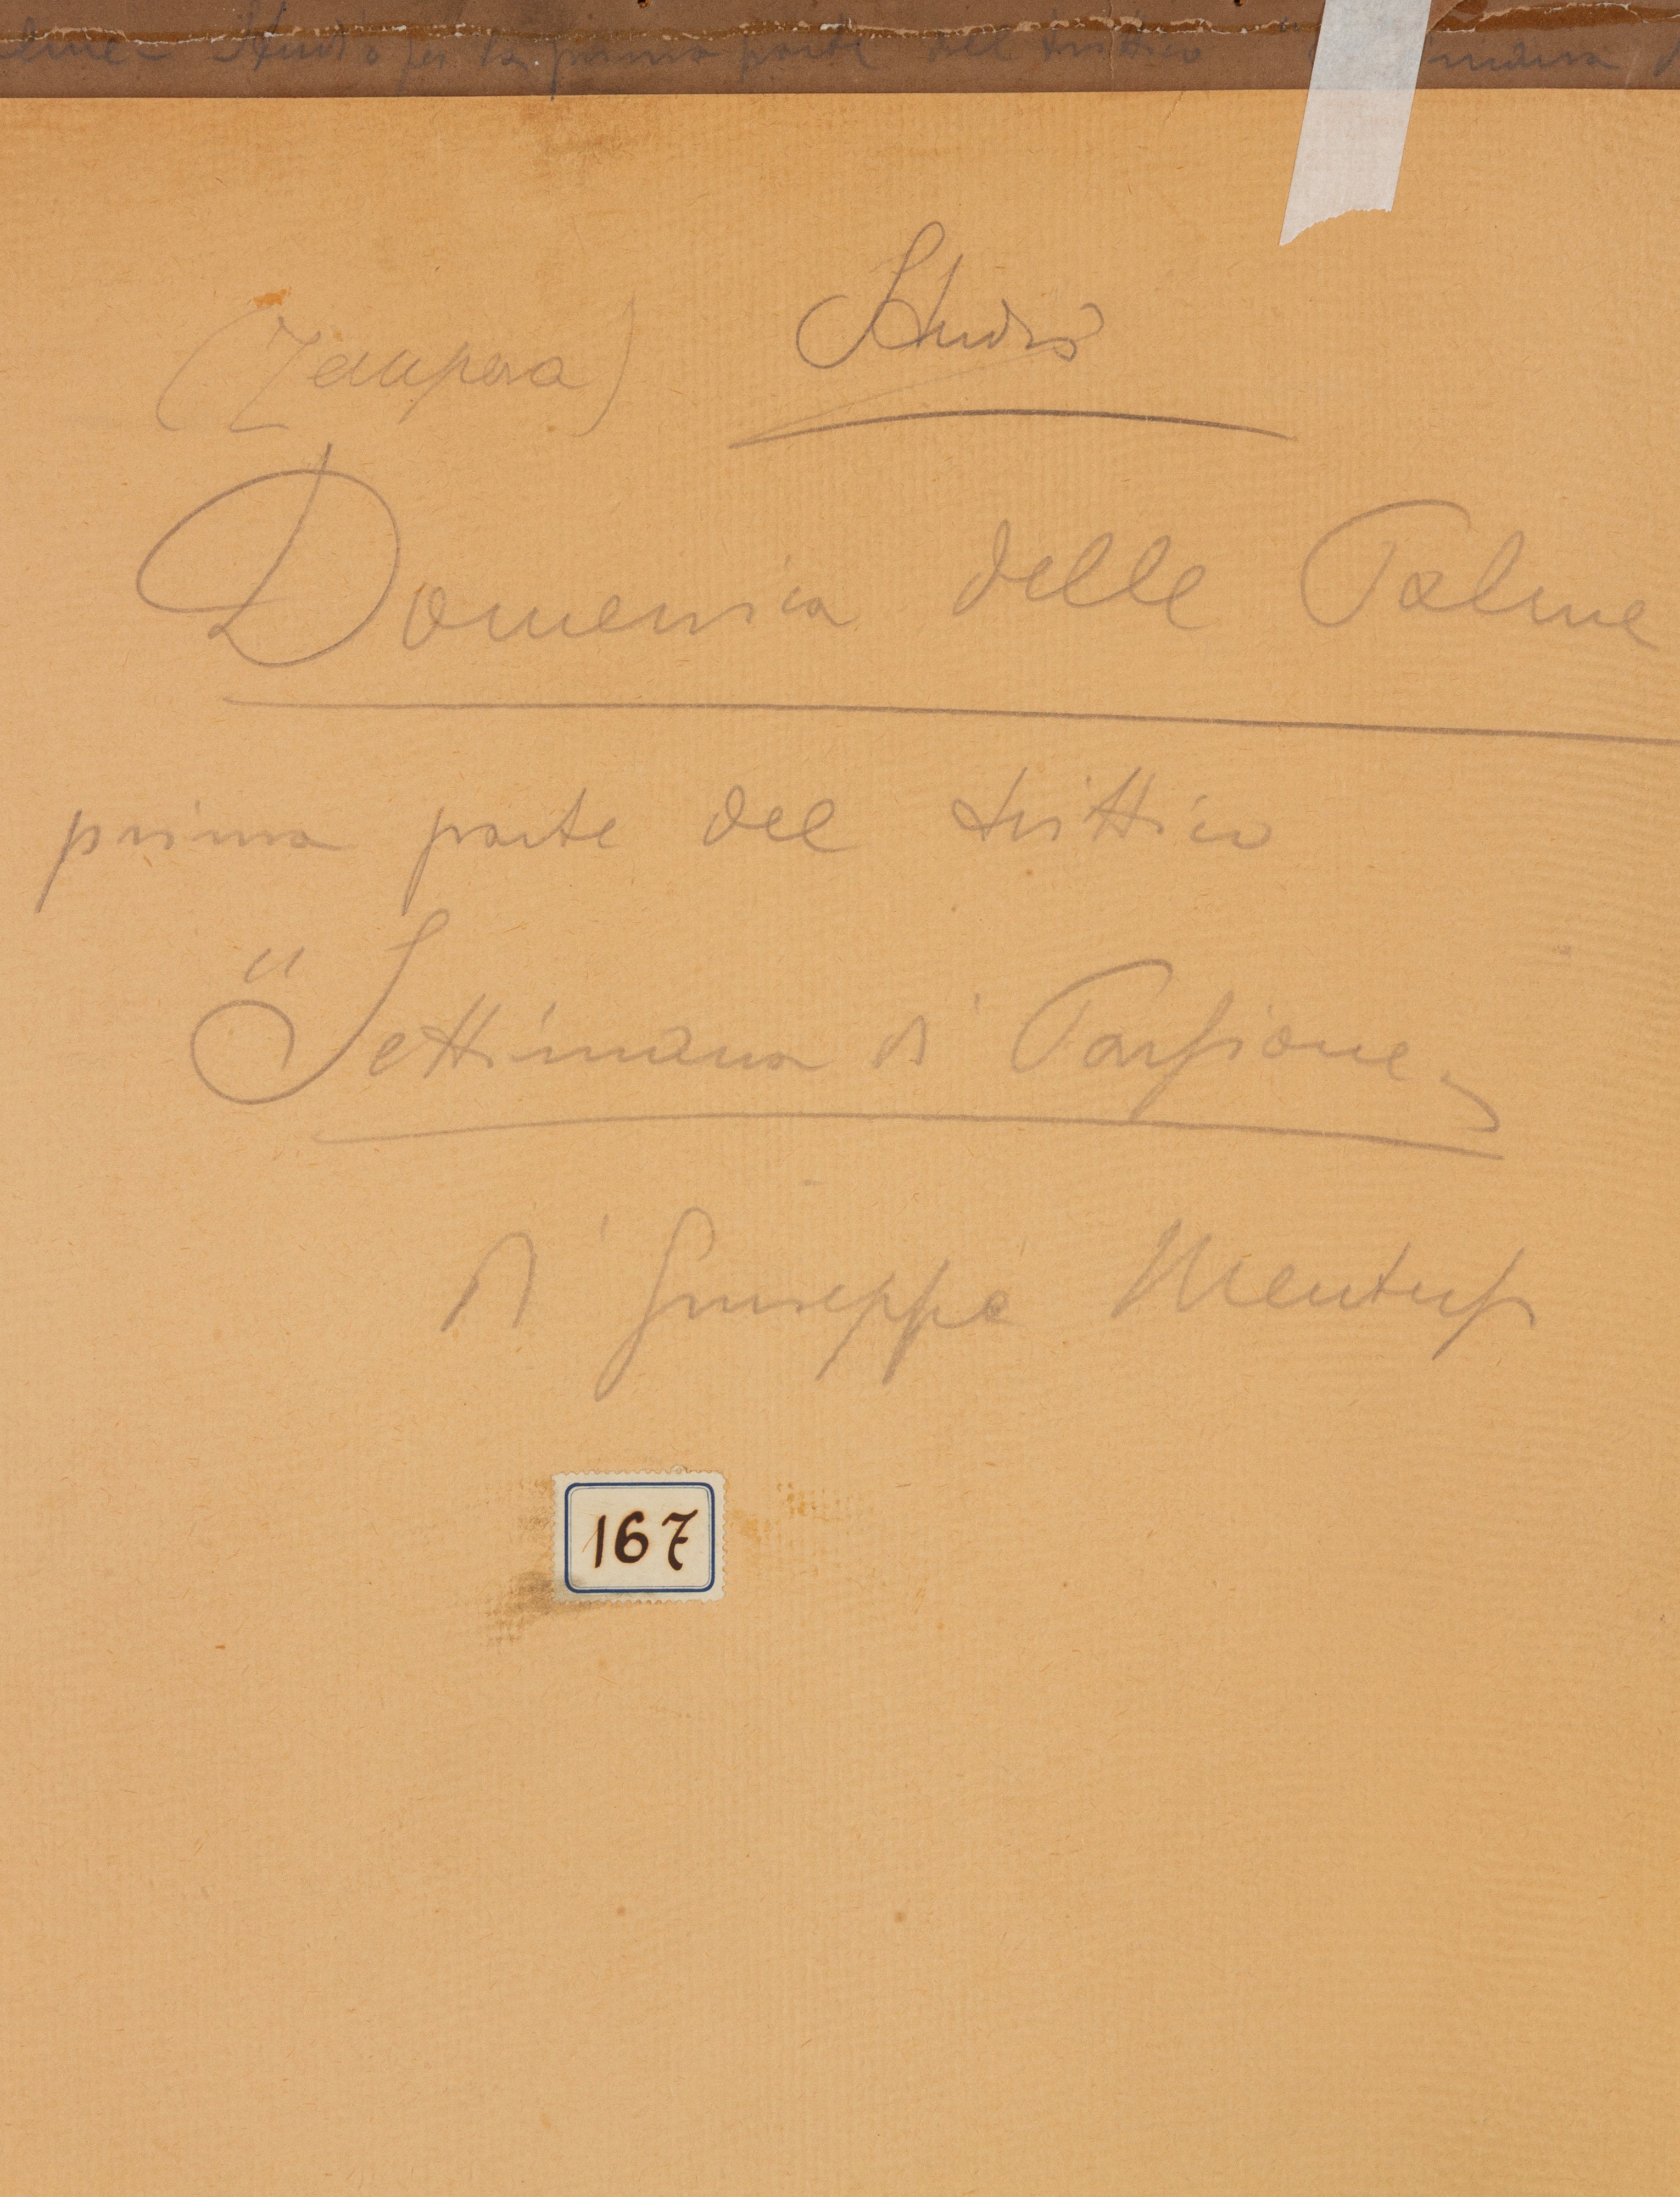 alme - Studio per la prima parte del trittico "S timana d
(Tempera) Studio
Domenica delle Palme
prima parte del trittico
"Settimana di Passione"
di Giuseppe Mentessi
167